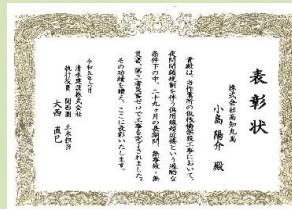 表彰状
株式会社高知丸高
小島 陽介 殿
貴殿は、当作業所の仮桟橋架設工事において、
夜間閉鎖規制を伴う供用線超近接という過酷な
条件下の中、二十九ヶ月の長期間、無事故・無
災害、第三者災害ゼロで工事を完了されました。
その功績を讃え、ここに表彰いたします。
令和五年六月
清水建設株式会社
執行役員 関西圏 土木担当
大西 直巳